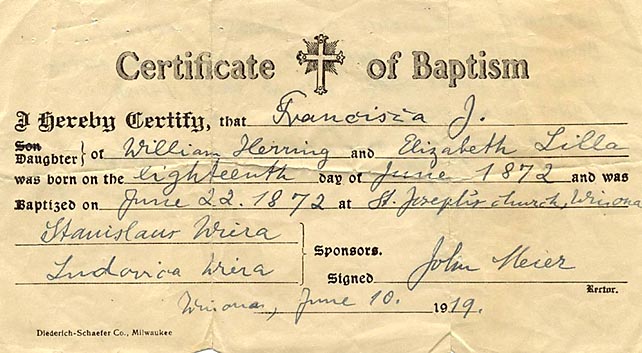 Certificate of Baptism
I Hereby Certify, that Francisca J.
Son
Daughter } of William Herring and Elizabeth Lilla
was born on the eighteenth day of June 1872 and was
Baptized on June 22. 1872 at St. Joseph's church, Winona
Stanislaus Wiera
Ludovica Wiera
Sponsors.
Signed John Meier
Rector.
Winona, June 10. 1919.
Diederich-Schaefer Co., Milwaukee